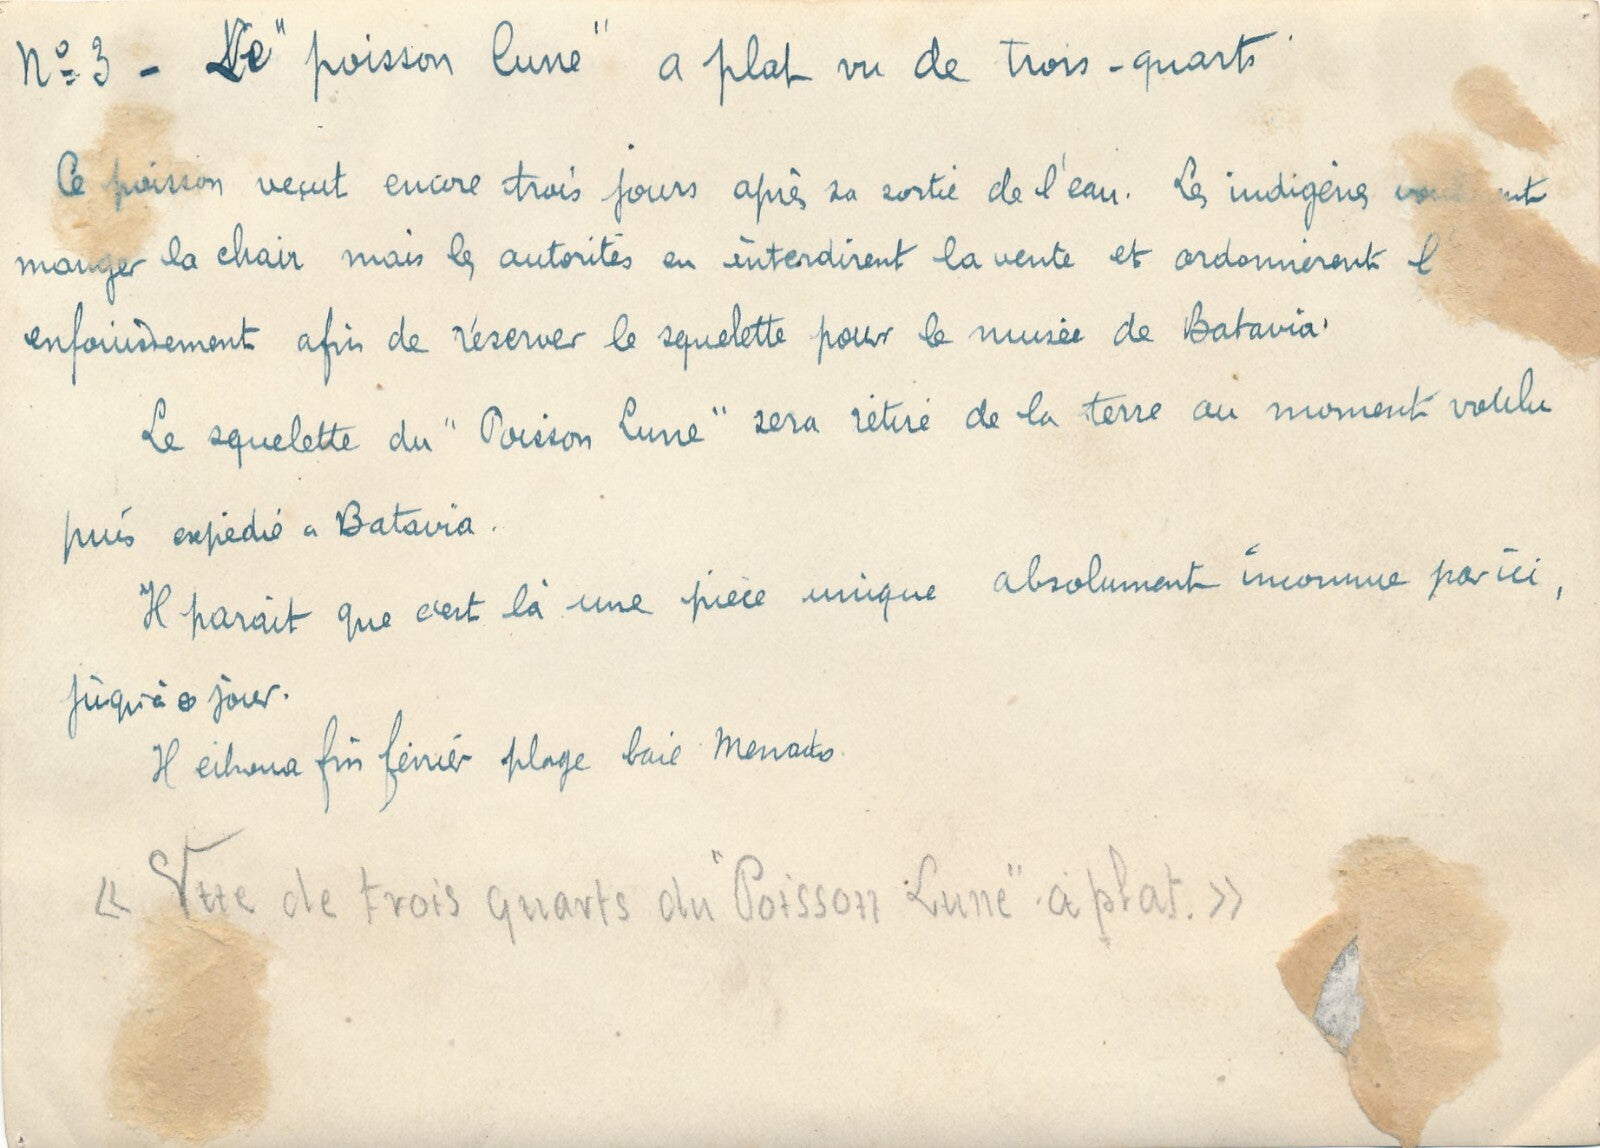 N° 3 - Le "poisson lune" a plat vu de trois-quarts
Ce poisson veçut encore trois jours après sa sortie de l'eau. Les indigènes
manger la chair mais les autorités en interdirent la vente et ordonnèrent l'
enfouissement afin de réserver le squelette pour le musée de Batavia.
Le squelette du "Poisson Lune" sera rétiré de la terre au moment voulu
puis expédié a Batavia.
Il parait que c'est là une pièce unique absolument inconnue par ici,
jusqu'à ce jour.
Il échoua fin février plage baie Menado.
« Vue de trois quarts du "Poisson Lune" à plat. »